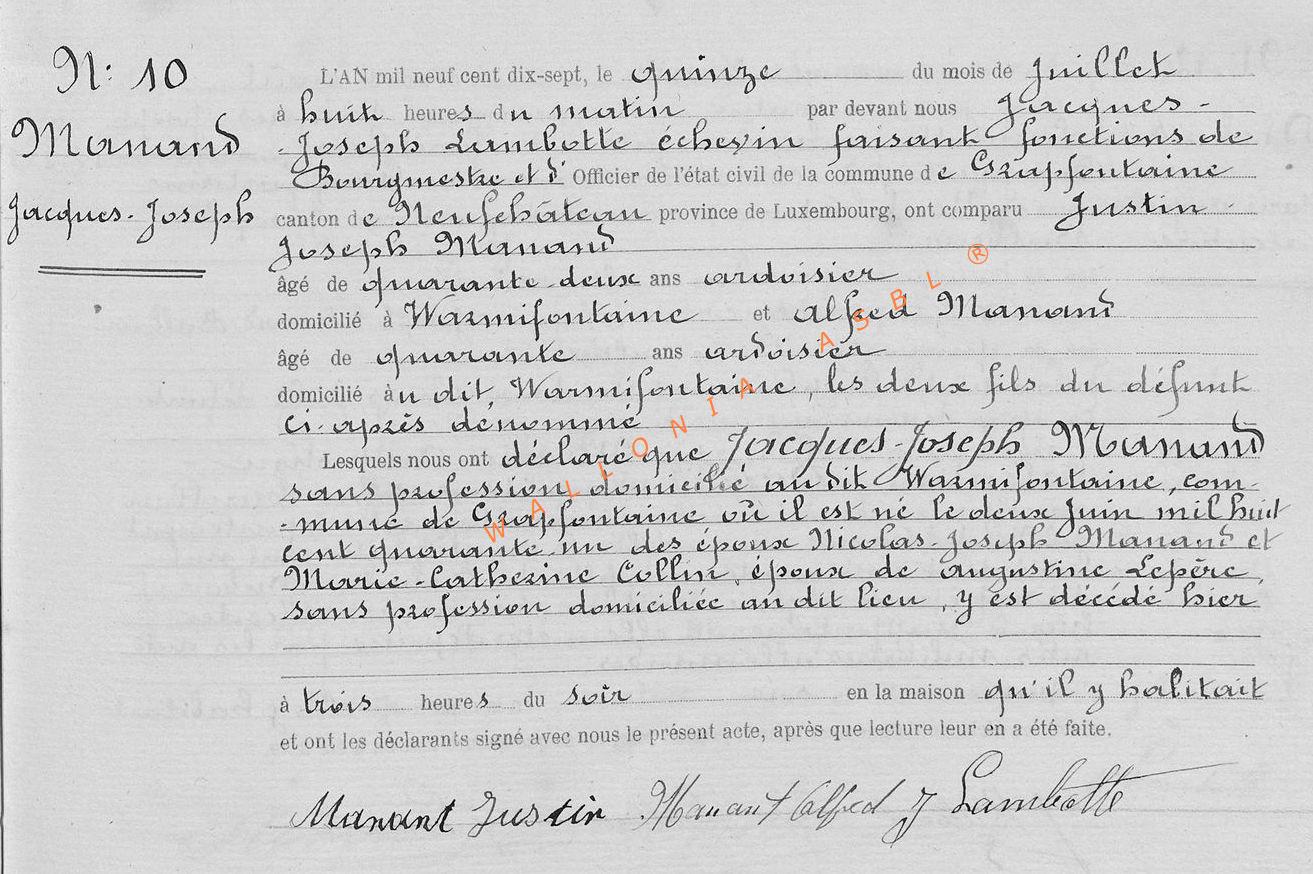 N: 10
Manand
Jacques-Joseph
L'AN mil neuf cent dix-sept, le quinze du mois de Juillet
à huit heures du matin par devant nous Jacques-
-Joseph Lambotte échevin faisant fonctions de
Bourgmestre et d' Officier de l'état civil de la commune de Grapfontaine
canton de Neufchâteau province de Luxembourg, ont comparu Justin-
Joseph Manand
âgé de quarante-deux ans ardoisier
domicilié à Warmifontaine et Alfred Manand
âgé de quarante ans ardoisier
domicilié àu dit, Warmifontaine, les deux fils du défunt
ci-après dénommé
Lesquels nous ont déclaré que Jacques-Joseph Manand
sans profession domicilié au dit Warmifontaine, com-
-mune de Grapfontaine où il est né le deux Juin mil huit
cent quarante-un des époux Nicolas-Joseph Manand et
Marie-Catherine Collin, époux de Augustine Lepère,
sans profession domiciliée au dit lieu, y est décédé hier
à trois heures du soir en la maison qu'il y habitait
et ont les déclarants signé avec nous le présent acte, après que lecture leur en a été faite.
Manant Justin Manant Alfred J Lambotte
WALLONIA ASBL ®